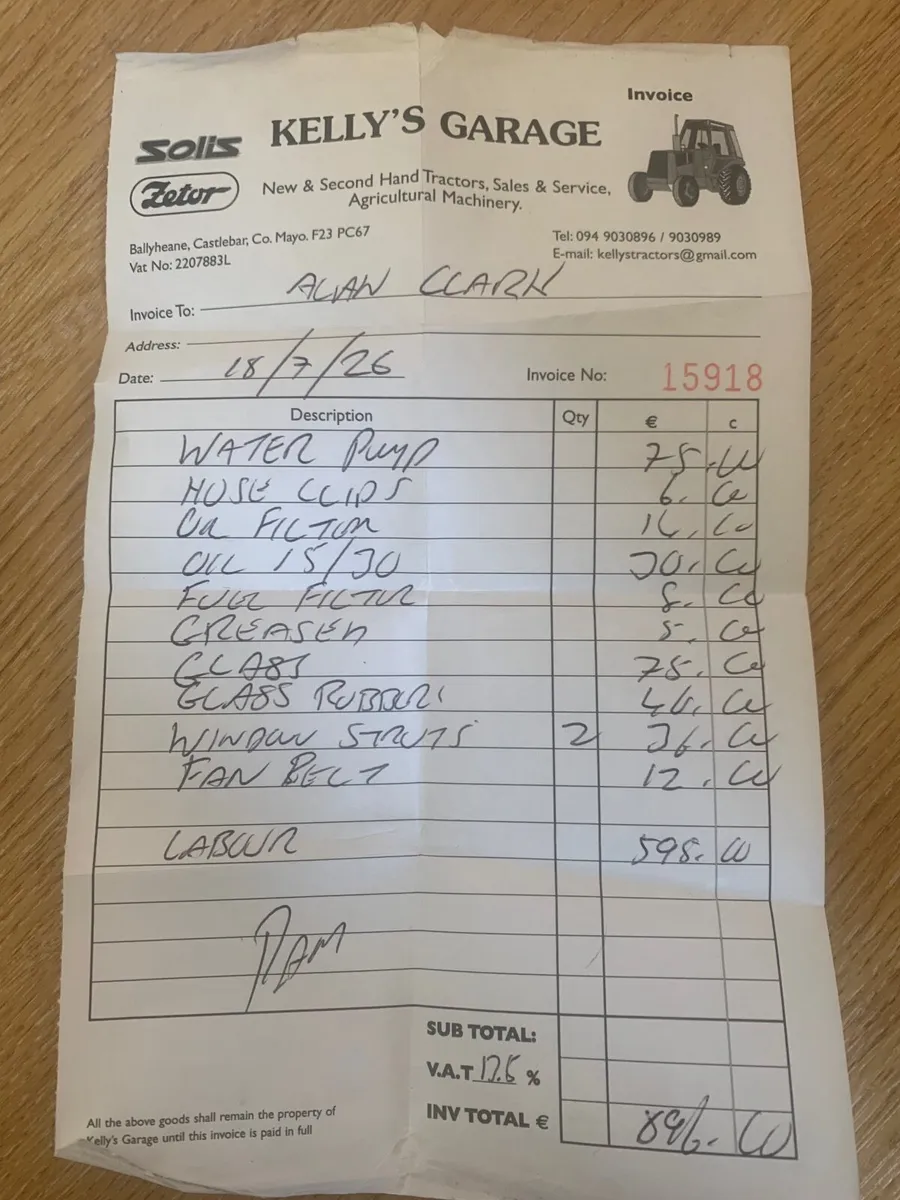 Invoice
SOLIS
KELLY'S GARAGE
Zetor
New & Second Hand Tractors, Sales & Service,
Agricultural Machinery.
Ballyheane, Castlebar, Co. Mayo. F23 PC67
Vat No: 2207883L
Tel: 094 9030896 / 9030989
E-mail: kellystractors@gmail.com
Invoice To: ALAN CLARK
Address:
Date: 18/7/26
Invoice No: 15918
Description Qty € c
WATER PUMP 75.00
HOSE CLIPS 6.00
OIL FILTER
OIL 15/30 30.00
FUEL FILTER 8.00
5.00
GLASS 75.00
GLASS RUBBER
WINDOW STRUTS 2 36.00
FAN BELT 12.00
LABOUR 598.00
SUB TOTAL:
V.A.T 13.5 %
INV TOTAL € 896.00
All the above goods shall remain the property of
Kelly's Garage until this invoice is paid in full